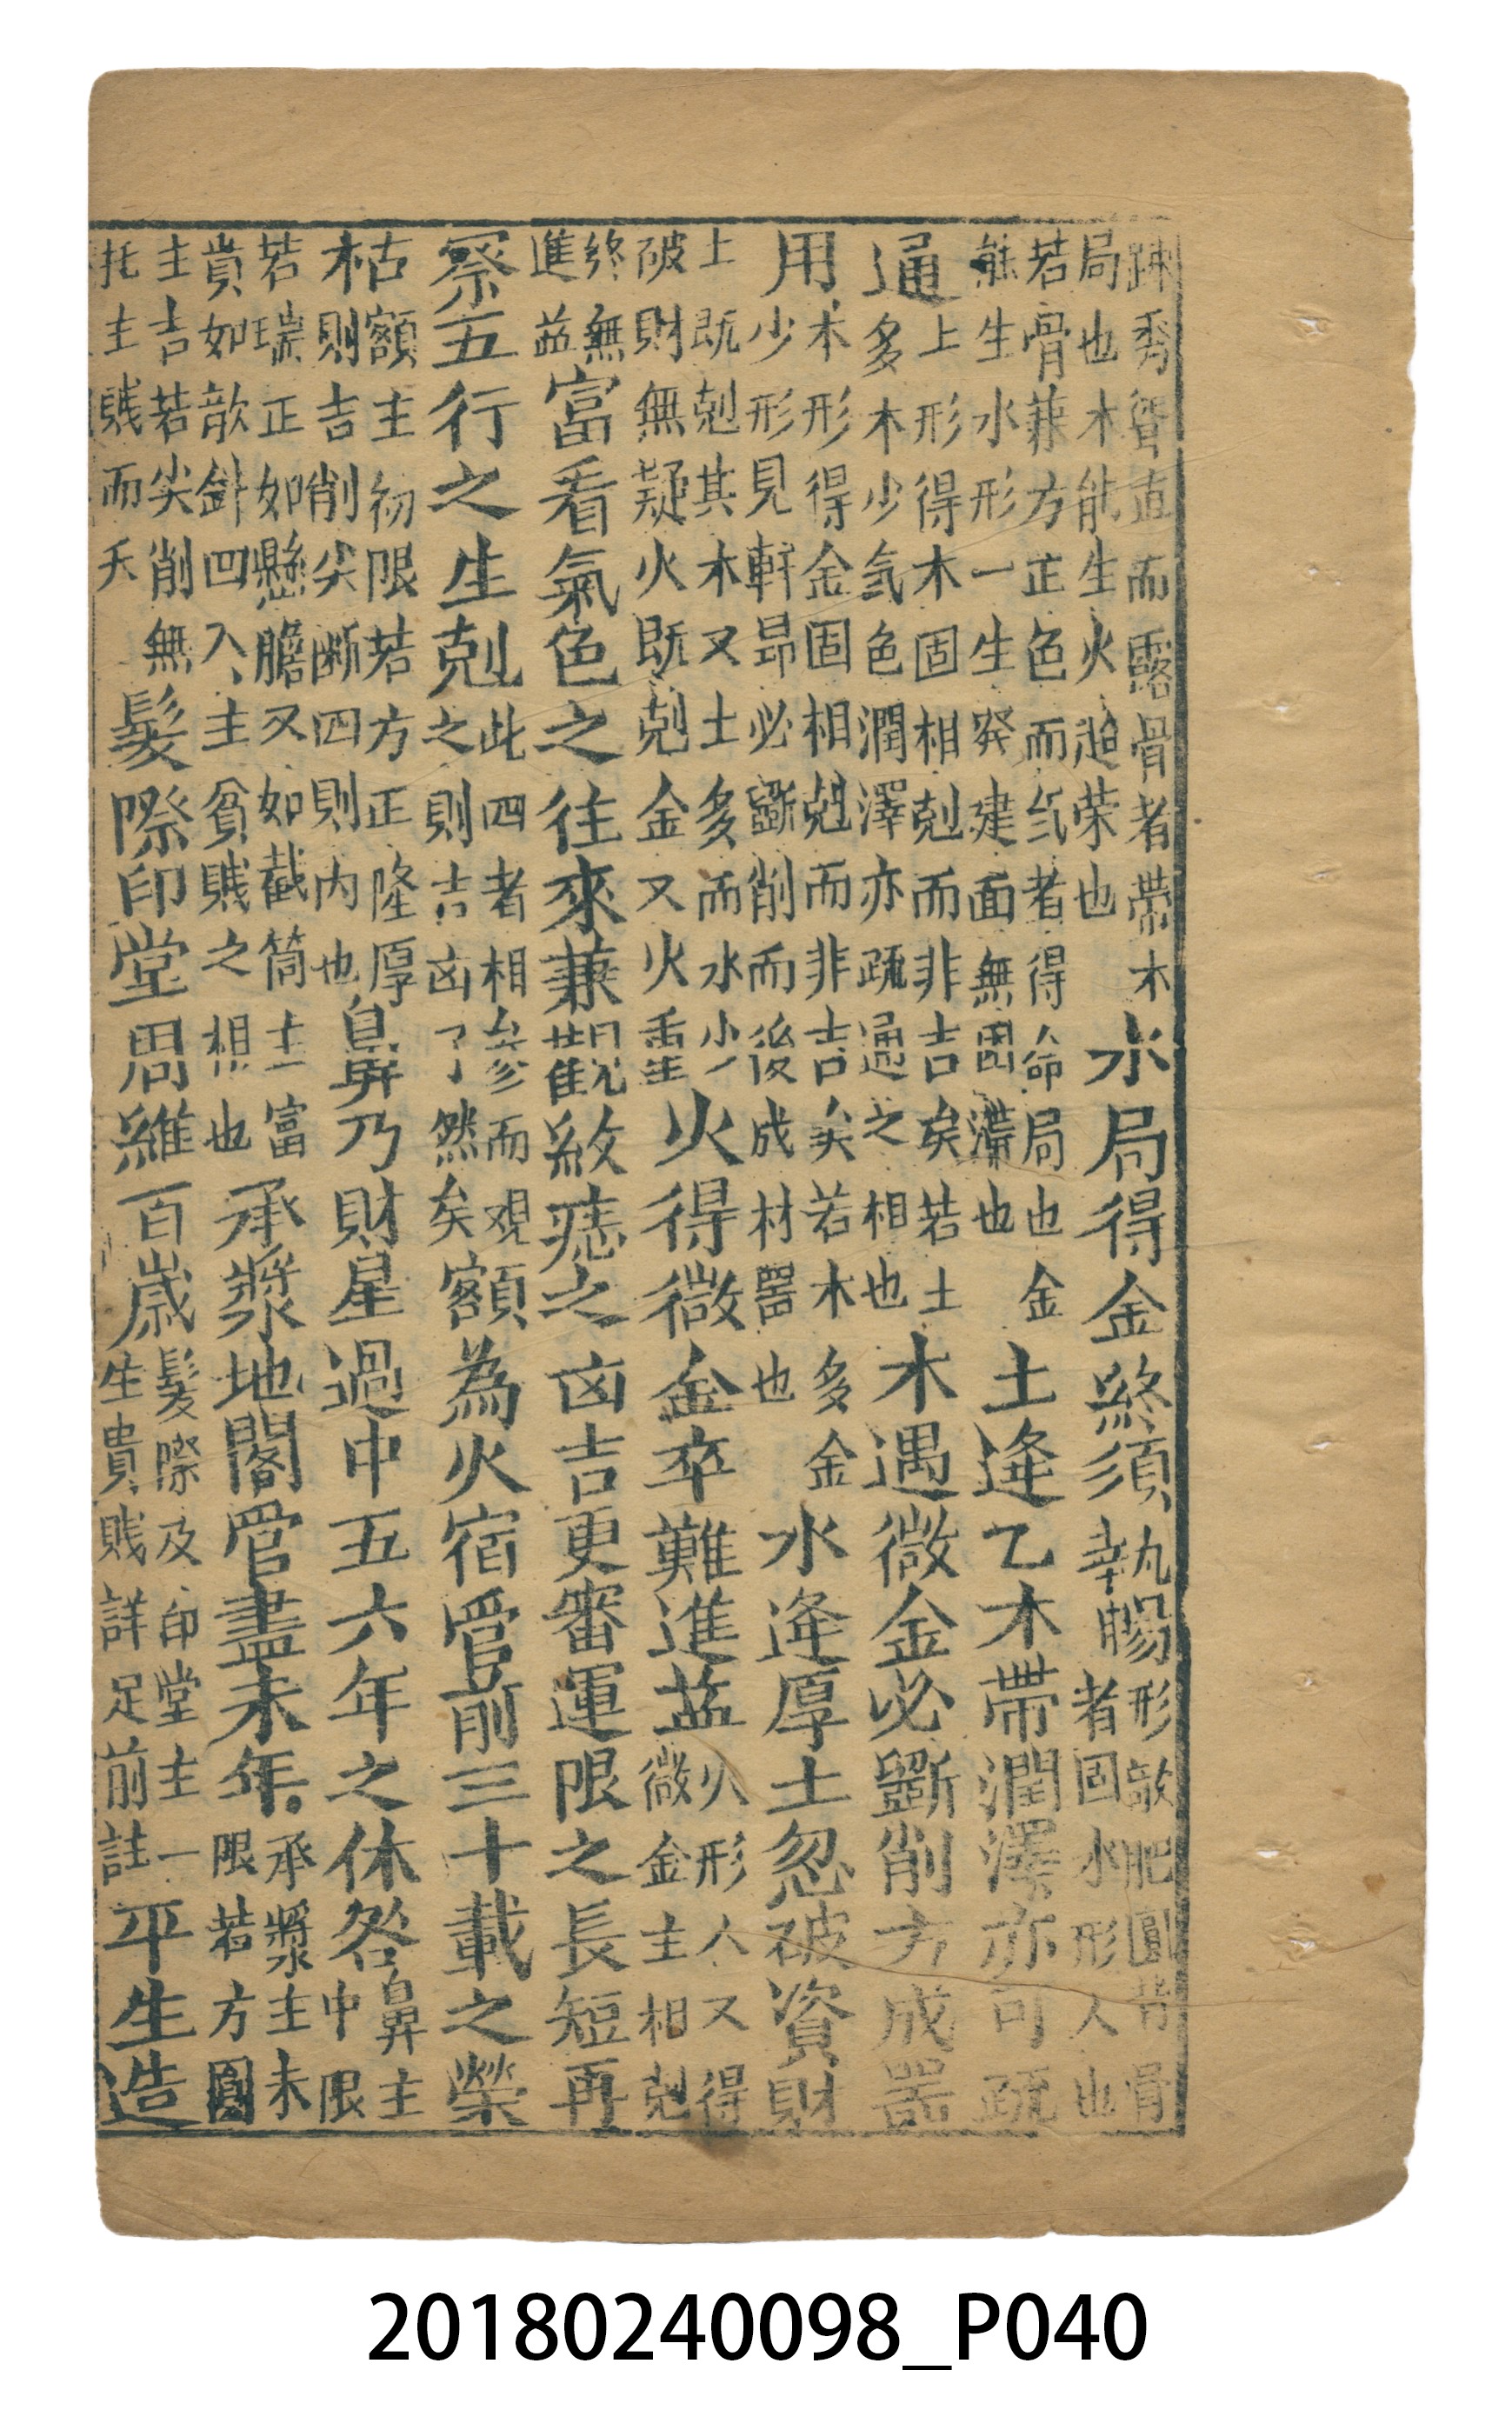 踈秀聳直而露骨者帶木局也木能生火起荣也水局得金終須執暢形敦肥圓背骨者固水形人也
若骨兼方正色而気者得命局也金能生水形一生癸建面無困滯也土逢乙木帶潤澤亦可疏
通上形得木固相剋而非吉矣若土多木少気色潤澤亦疏通之相也木遇微金必斵削方成噐
用木形得金固相剋而非吉矣若木多金少形見軒昂必斵削而後成材噐也水逢厚土忽破資財
上既剋其木又土多而水少破財無疑火既剋金又火重火得微金卒難進益火形人又得微金主相剋
終無進益富看氣色之往來兼觀紋痣之凶吉更審運限之長短再
察五行之生剋此四者相參而观之則吉凶了然矣額為火宿管前三十載之榮
枯額主初限若方正隆厚則吉削尖断四則内也鼻乃財星過中五六年之休咎鼻主中限
若瑞正如懸膽又如截筒主富貴如歆針凹入主貧賤之相也承漿地閣管盡末年承漿主末限若方圓
主吉若尖削無托主賤而夭髮際印堂周維百歲髮際及印堂主一生貴賤詳足前註平生造
20180240098_P040